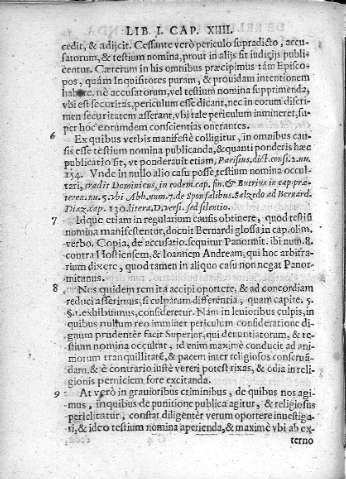 LIB. I. CAP. XIIII.
cedit, & adijcit. Cessante verò periculo supradicto, accu-
satorum, & testium nomina, prout in alijs fit iudicijs publi-
centur. Cæterum in his omnibus præcipimus tam Episco-
pos, quàm Inquisitores puram, & prouidam intentionem
habere, nè accusatorum, vel testium nomina supprimenda,
vbi est securitas, periculum esse dicant, nec in eorum discri-
men securitatem asserant, vbi tale periculum immineret, su-
per hoc eorumdem conscientias onerantes.
6 Ex quibus verbis manifestè colligitur, in omnibus cau-
sis esse testium nomina publicanda, & quanti ponderis hæc
publicatio sit, vt ponderauit etiam, Parisius. dict. consi. 2. nu.
154. Vnde in nullo alio casu posse testium nomina occul-
tari, tradit Dominicus, in eodem cap. fin. & Butrius in cap. præ-
terea. nu. 5. vbi Abb. num. 7. de Sponsalibus. Salzedo ad Bernard.
Diaz. cap. 130. litera. D. vers. sed silentio.
7 Idque etiam in regularium causis obtinere, quod testiũ
nomina manifestentur, docuit Bernardi glossa in cap. olim.
verbo. Copia, de accusatio. sequitur Panormit. ibi num. 8.
contra Hostiensem, & Ioannem Andream, qui hoc arbitra-
rium dixere, quod tamen in aliquo casu non negat Panor-
mitanus.
8 Nos quidem rem ita accipi oportere, & ad concordiam
reduci asserimus, si culparum differentia, quam capite. 5.
§. 1. exhibuimus, consideretur. Nàm in leuioribus culpis, in
quibus nullum reo imminet periculum consideratione di-
gnum prudenter faciet Superior, qui denuntiatorum, & te-
stium nomina occultat, id enim maximè conducit ad ani-
morum tranquillitatẽ, & pacem inter religiosos conseruã-
dam, & è contrario iustè vereri potest rixas, & odia in reli-
gionis perniciem fore excitanda.
9 At verò in grauioribus criminibus, de quibus nos agi-
mus, in quibus de punitione publica agitur, & religiosus
periclitatur, constat diligenter verum oportere inuestiga-
ri, & ideo testium nomina aperienda, & maximè vbi ab ex-
terno